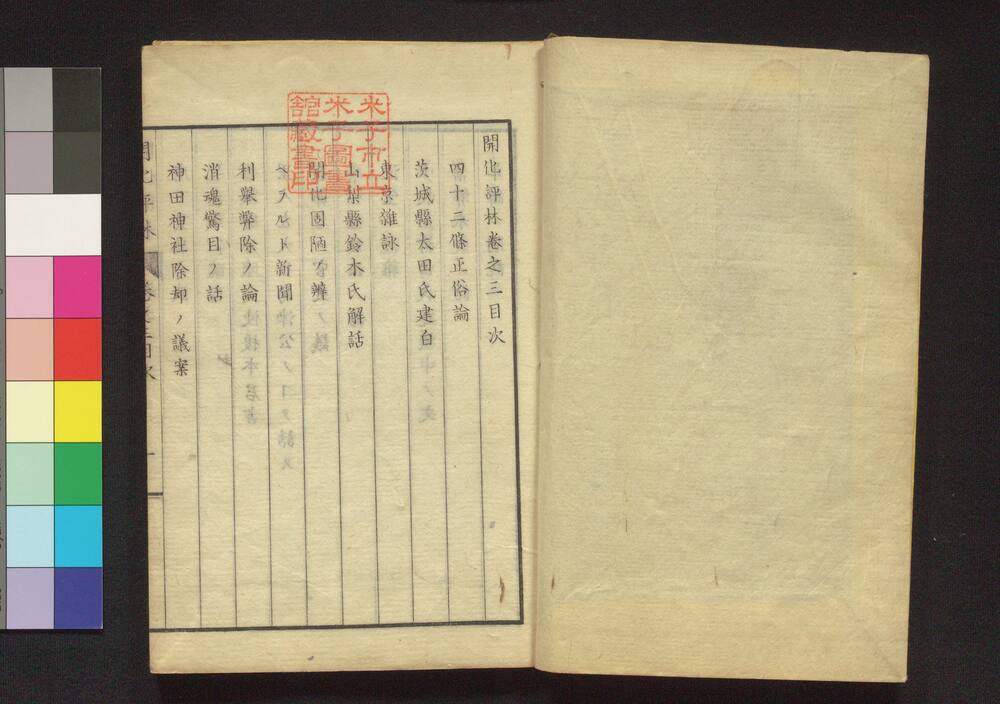 開化評林卷之三目次
四十二條正俗論
茨城縣太田氏建白
東京雜詠
山梨縣鈴木氏解話
開化固陋ノ辨
ヘラルド新聞
利擧弊除ノ論
消魂驚目ノ話
神田神社除却ノ議案
米子市立
米子圖書
館藏書印